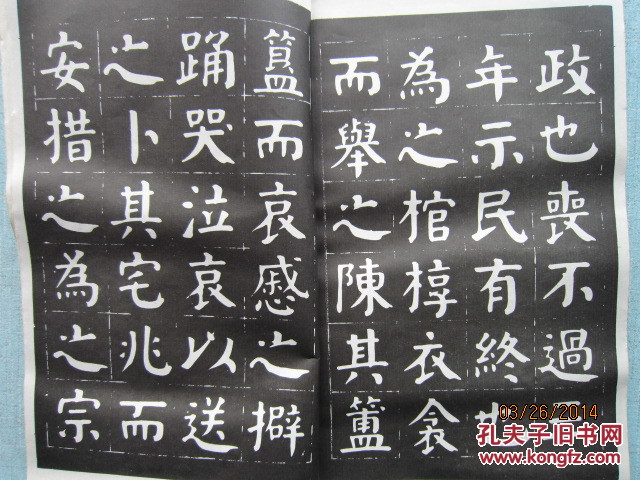 政也喪不過
年示民有終也
為之棺椁衣衾
而舉之陳其簠
簋而哀慼之擗
踊哭泣哀以送
之卜其宅兆而
安措之為之宗
03/26/2014
孔夫子旧书网
www.kongfz.com